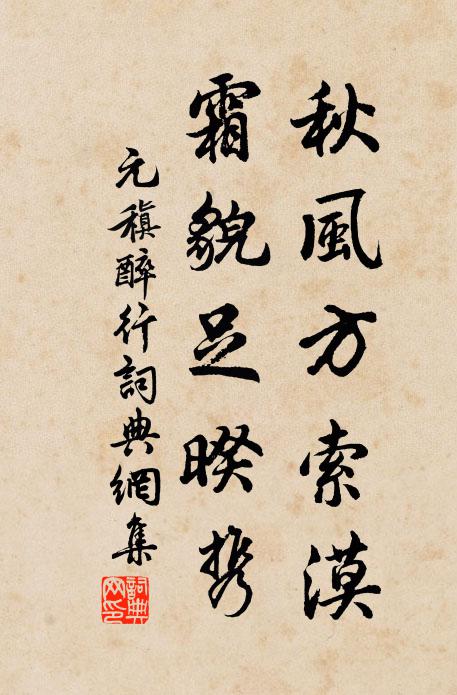 秋風方索漠
霜貌足暌携
元稹醉行詞典網集
詞典网印